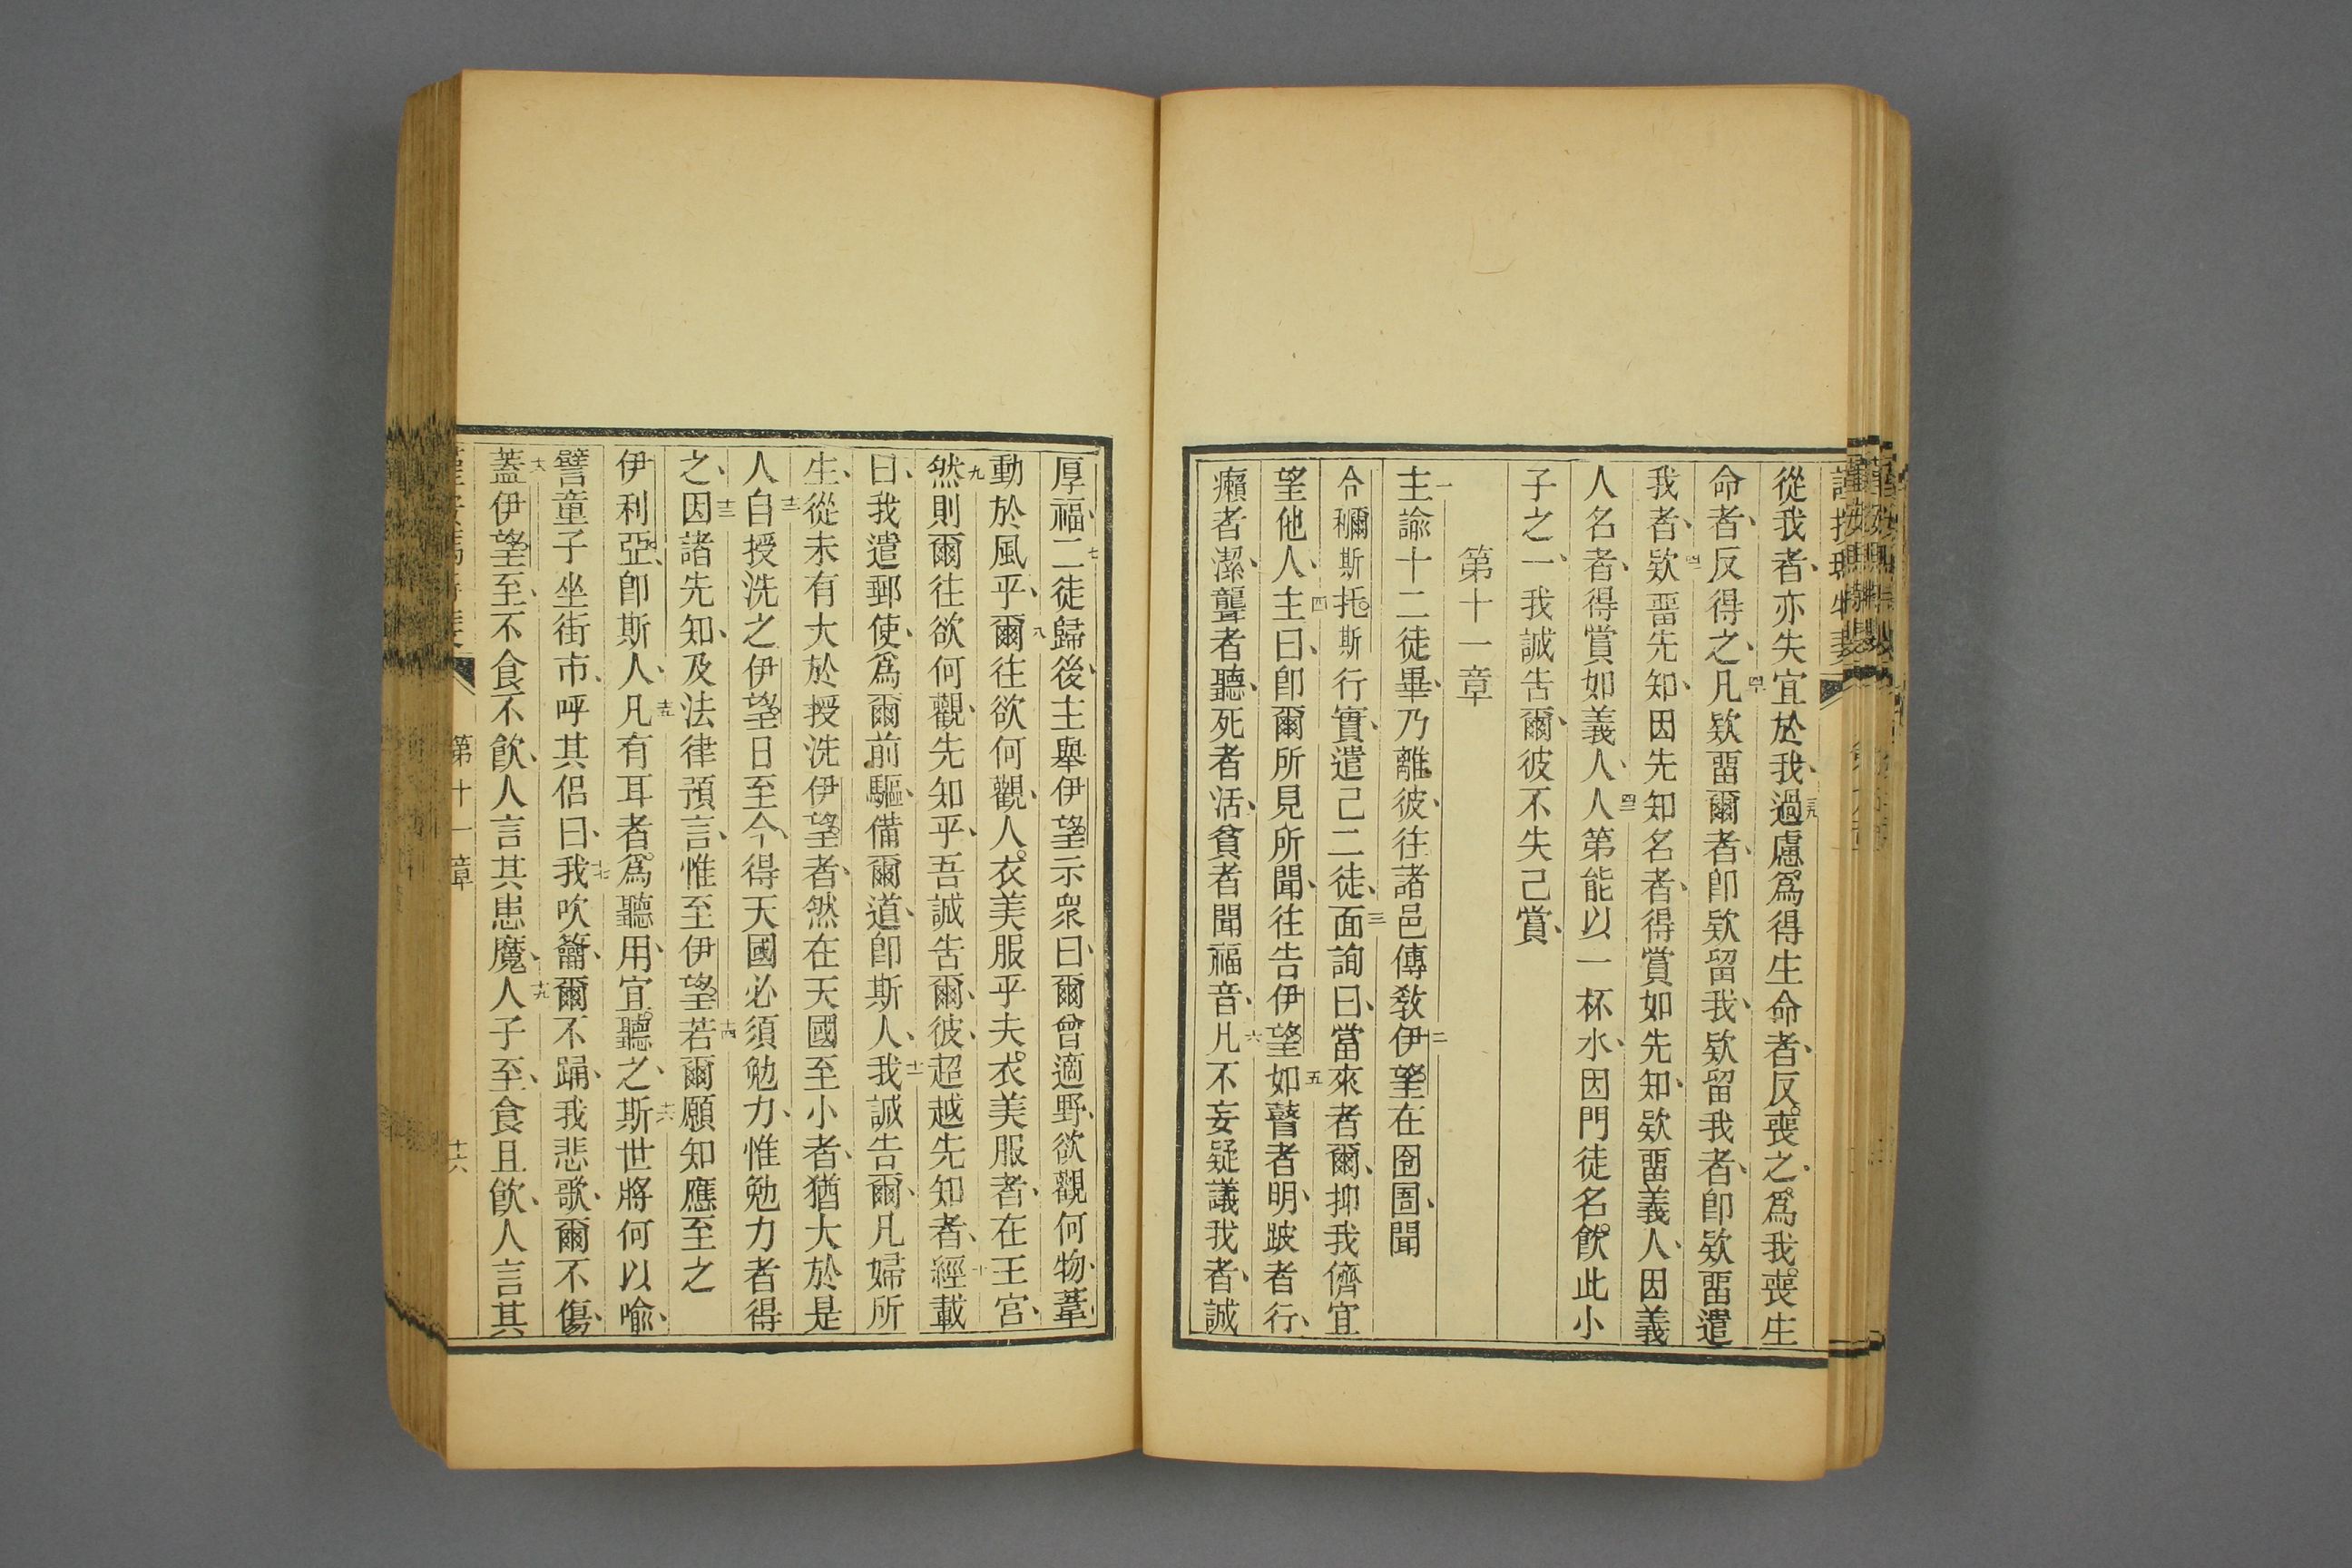 從我者、亦失宜於我、過慮爲得生命者、反喪之、爲我喪生
命者、反得之、凡欵畱爾者、卽欵留我、欵留我者、卽欵畱遣
我者、欵畱先知、因先知名者、得賞如先知、欵畱義人、因義
人名者、得賞如義人、人第能以一杯水、因門徒名飮此小
子之一、我誠告爾、彼不失己賞、
第十一章
主諭十二徒畢、乃離彼、往諸邑傳敎伊望在囹圄、聞
合穪斯托斯行實、遣己二徒、面詢曰、當來者爾、抑我儕宜
望他人、主曰、卽爾所見所聞、往告伊望如瞽者明、跛者行、
癩者潔、聾者聽、死者活、貧者聞福音、凡不妄疑議我者、誠
厚福、二徒歸後、主舉伊望示衆曰、爾曾適野、欲觀何物、葦
動於風乎、爾往欲何觀、人衣美服乎夫衣美服者、在王宮、
然則爾往欲何觀、先知乎、吾誠告爾、彼、超越先知者、經載
曰、我遣郵使、爲爾前驅、備爾道、卽斯人、我誠告爾、凡婦所
生、從未有大於授洗伊望者、然在天國至小者、猶大於是
人自授洗之伊望日至今、得天國必須勉力、惟勉力者得
之、因諸先知、及法律預言、惟至伊望若爾願知應至之
伊利亞、卽斯人、凡有耳者爲聽用、宜聽之、斯世將何以喩、
譬童子坐街市、呼其侶曰、我吹籥、爾不踊、我悲歌、爾不傷、
蓋伊望至、不食不飮、人言其患魔、人子至、食且飮、人言其
第十一章
十六